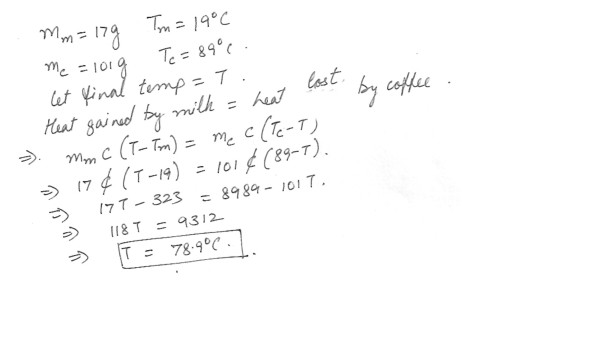 m_m = 17g T_m = 19°C
m_c = 101g T_c = 89°C.
Let final temp = T.
Heat gained by milk = heat lost by coffee.
⇒. m_m C (T-T_m) = m_c C (T_c-T)
⇒ 17 ₵ (T-19) = 101 ₵ (89-T).
⇒ 17T - 323 = 8989 - 101T.
⇒ 118T = 9312
⇒ T = 78.9°C.